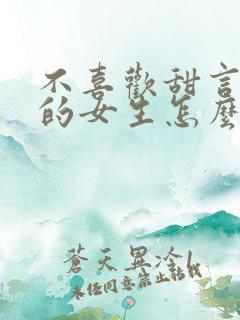 不喜歡甜言
的女生怎麼
蒼天異冷
未經同意禁止轉載